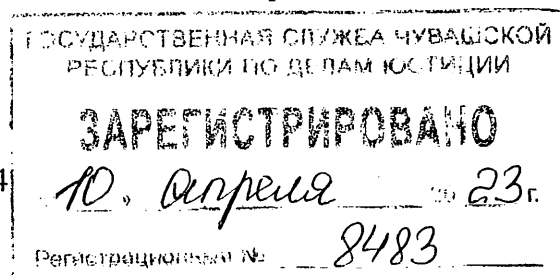 ГОСУДАРСТВЕННАЯ СЛУЖБА ЧУВАШСКОЙ
РЕСПУБЛИКИ ПО ДЕЛАМ ЮСТИЦИИ
ЗАРЕГИСТРИРОВАНО
10 апреля 2023г.
Регистрационный № 8483